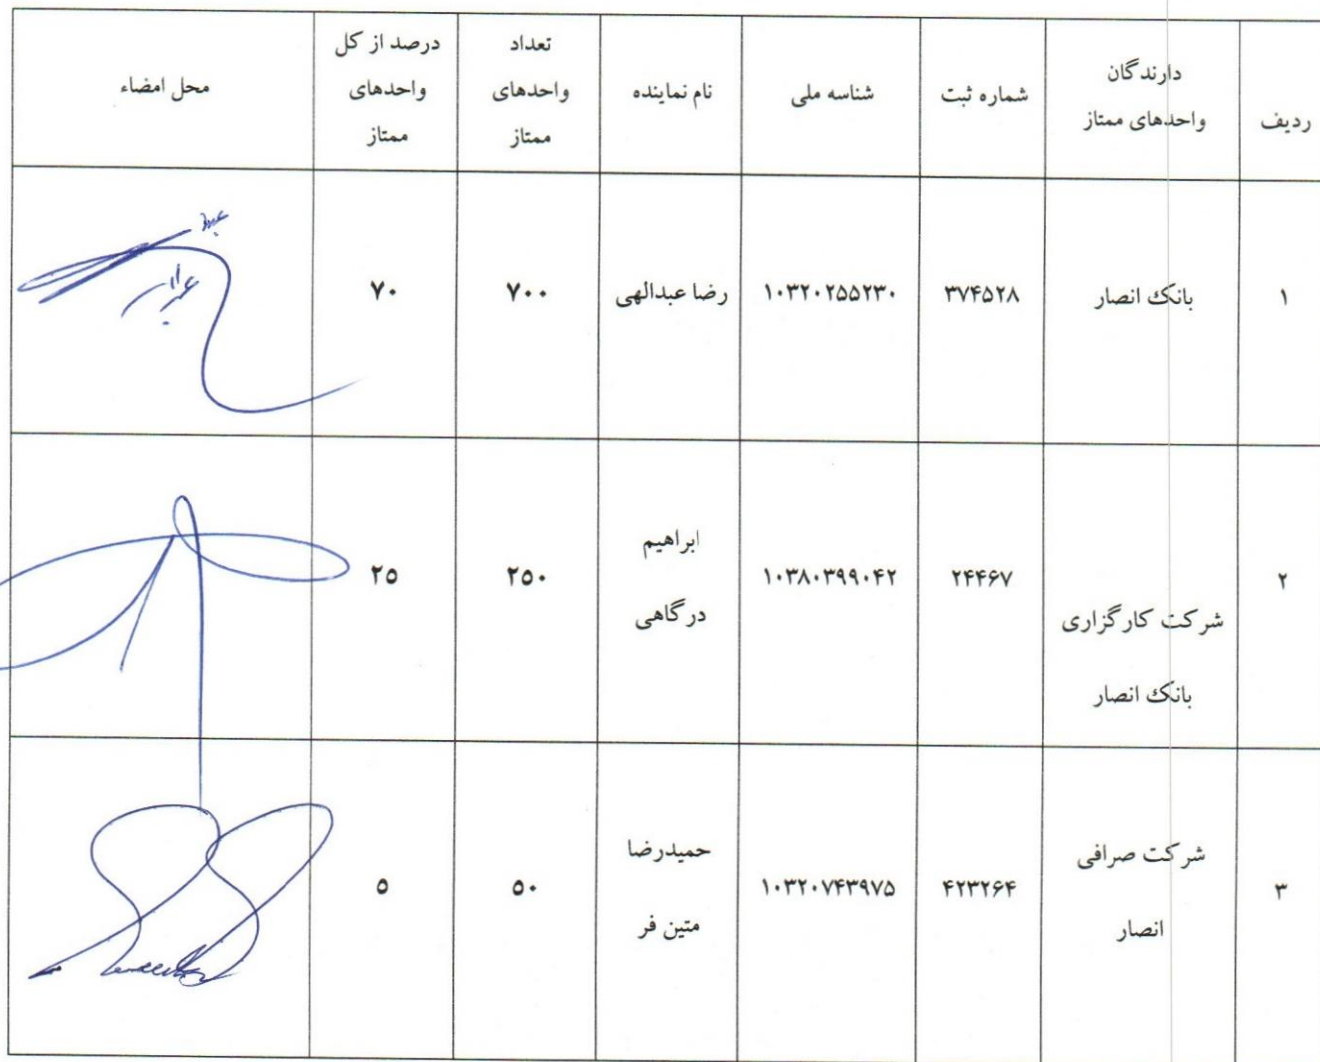 ردیف
دارندگان
واحدهای ممتاز
شماره ثبت
شناسه ملی
نام نماینده
تعداد
واحدهای
ممتاز
درصد از کل
واحدهای
ممتاز
محل امضاء
۱
بانک انصار
۳۷۴۵۲۸
۱۰۳۲۰۲۵۵۲۳۰
رضا عبدالهی
۷۰۰
۷۰
۲
شرکت کارگزاری
بانک انصار
۲۴۴۶۷
۱۰۳۸۰۳۹۹۰۴۲
ابراهیم
درگاهی
۲۵۰
۲۵
۳
شرکت صرافی
انصار
۴۲۳۲۶۴
۱۰۳۲۰۷۴۳۹۷۵
حمیدرضا
متین فر
۵۰
۵